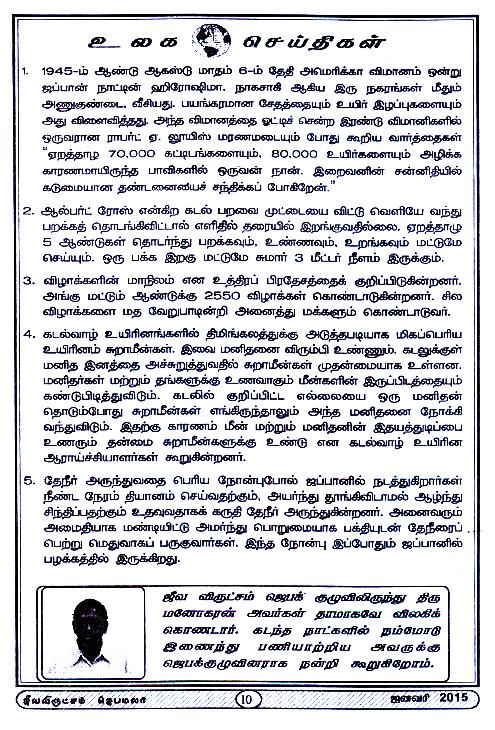 உலக செய்திகள்
1. 1945-ம் ஆண்டு ஆகஸ்டு மாதம் 6-ம் தேதி அமெரிக்கா விமானம் ஒன்று
ஜப்பான் நாட்டின் ஹிரோஷிமா. நாகசாகி ஆகிய இரு நகரங்கள் மீதும்
அணுகுண்டை, வீசியது. பயங்கரமான சேதத்தையும் உயிர் இழப்புகளையும்
அது விளைவித்தது. அந்த விமானத்தை ஓட்டிச் சென்ற இரண்டு விமானிகளில்
ஒருவரான ராபர்ட் ஏ. லூயிஸ் மரணமடையும் போது கூறிய வார்த்தைகள்
"ஏறத்தாழ 70,000 கட்டிடங்களையும், 80,000 உயிர்களையும் அழிக்க
காரணமாயிருந்த பாவிகளில் ஒருவன் நான். இறைவனின் சன்னிதியில்
கடுமையான தண்டனையைச் சந்திக்கப் போகிறேன்."
2. ஆல்பர்ட் ரோஸ் என்கிற கடல் பறவை முட்டையை விட்டு வெளியே வந்து
பறக்கத் தொடங்கிவிட்டால் எளிதில் தரையில் இறங்குவதில்லை. ஏறத்தாழு
5 ஆண்டுகள் தொடர்ந்து பறக்கவும், உண்ணவும், உறங்கவும் மட்டுமே
செய்யும். ஒரு பக்க இறகு மட்டுமே சுமார் 3 மீட்டர் நீளம் இருக்கும்.
3. விழாக்களின் மாநிலம் என உத்திரப் பிரதேசத்தைக் குறிப்பிடுகின்றனர்.
அங்கு மட்டும் ஆண்டுக்கு 2550 விழாக்கள் கொண்டாடுகின்றனர். சில
விழாக்களை மத வேறுபாடின்றி அனைத்து மக்களும் கொண்டாடுவர்.
4. கடல்வாழ் உயிரினங்களில் திமிங்கலத்துக்கு அடுத்தபடியாக மிகப்பெரிய
உயிரினம் சுறாமீன்கள். இவை மனிதனை விரும்பி உண்ணும். கடலுக்குள்
மனித இனத்தை அச்சுறுத்துவதில் சுறாமீன்கள் முதன்மையாக உள்ளன.
மனிதர்கள் மற்றும் தங்களுக்கு உணவாகும் மீன்களின் இருப்பிடத்தையும்
கண்டுபிடித்துவிடும். கடலில் குறிப்பிட்ட எல்லையை ஒரு மனிதன்
தொடும்போது சுறாமீன்கள் எங்கிருந்தாலும் அந்த மனிதனை நோக்கி
வந்துவிடும். இதற்கு காரணம் மீன் மற்றும் மனிதனின் இதயத்துடிப்பை
உணரும் தன்மை சுறாமீன்களுக்கு உண்டு என கடல்வாழ் உயிரின
ஆராய்ச்சியாளர்கள் கூறுகின்றனர்.
5. தேநீர் அருந்துவதை பெரிய நோன்புபோல் ஜப்பானில் நடத்துகிறார்கள்
நீண்ட நேரம் தியானம் செய்வதற்கும், அயர்ந்து தூங்கிவிடாமல் ஆழ்ந்து
சிந்திப்பதற்கும் உதவுவதாகக் கருதி தேநீர் அருந்துகின்றனர். அனைவரும்
அமைதியாக மண்டியிட்டு அமர்ந்து பொறுமையாக பக்தியுடன் தேநீரைப்
பெற்று மெதுவாகப் பருகுவார்கள். இந்த நோன்பு இப்போதும் ஜப்பானில்
பழக்கத்தில் இருக்கிறது.
ஜீவ விருட்சம் ஜெபக் குழுவிலிருந்து திரு
மனோகரன் அவர்கள் தாமாகவே விலகிக்
கொண்டார். கடந்த நாட்களில் நம்மோடு
இணைந்து பணியாற்றிய அவருக்கு
ஜெபக்குழுவினராக நன்றி கூறுகிறோம்.
ஜீவவிருட்சம் ஜெபமலர்
10
ஜனவரி 2015